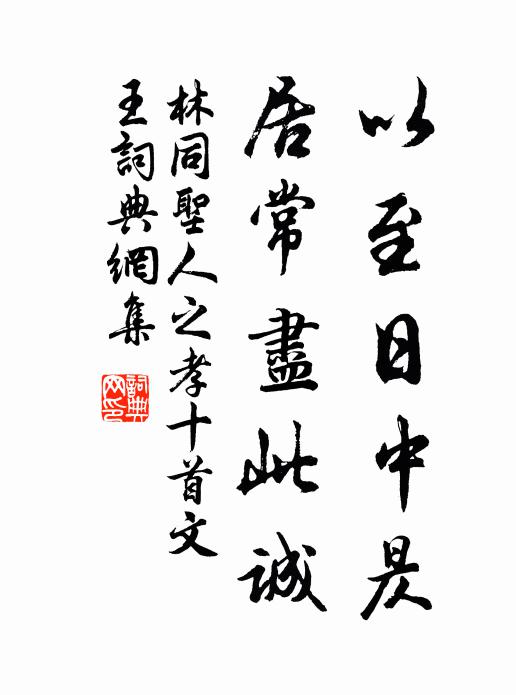 以至日中昃
居常盡此誠
林同聖人之孝十首文
王詞典網集
詞典
网印